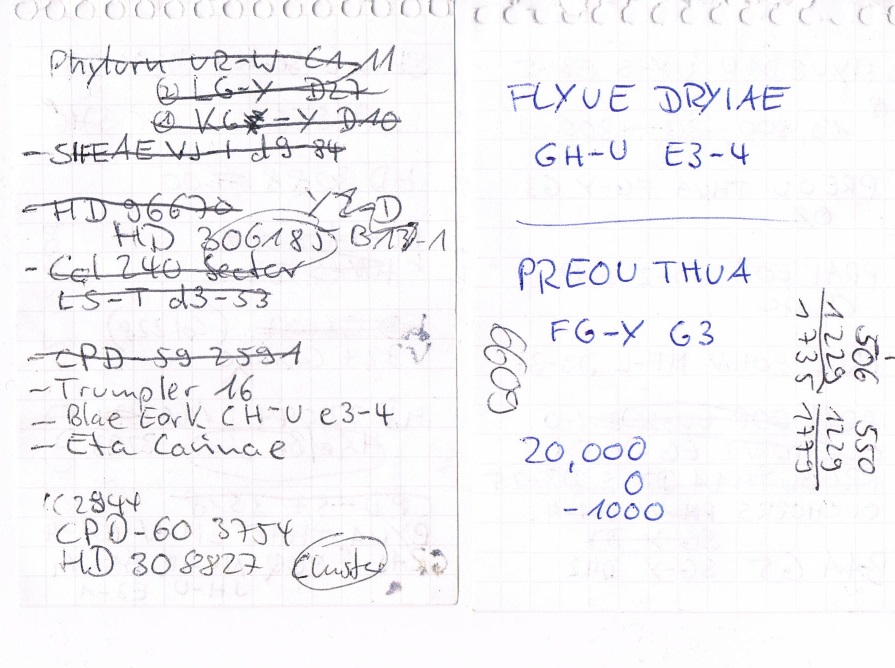 Phylurn UR-W C1-11
② LG-Y D27
① KG -Y D10
- SIFEAE VJ-I d9-84
- HD 96670 YZ-D
HD 306185 B13-1
- Col 240 Sector
LS-T d3-53
- CPD-59 2591
- Trumpler 16
- Blae Eork CH-U e3-4
- Eta Carinae
IC 2944
CPD-60 3754
HD 308827 Cluster
FLYUE DRYIAE
GH-U E3-4
PREOU THUA
FG-X G3
6605
20,000
0
-1000
506
1229
1735
550
1229
1779